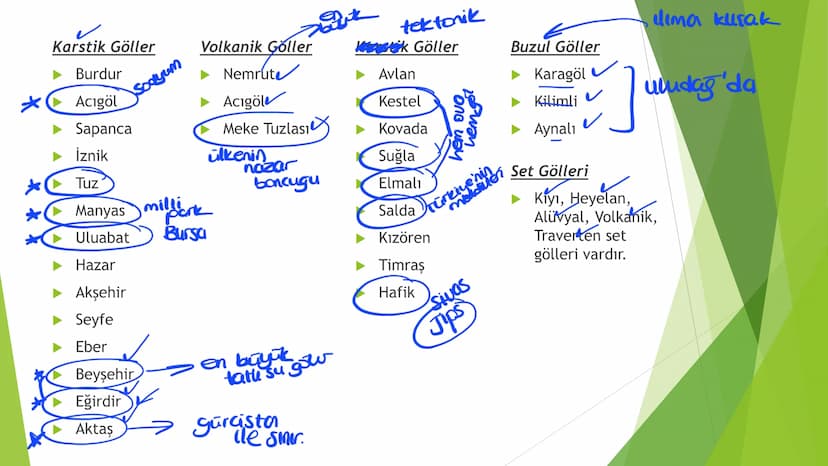 Karstik Göller
Burdur
Acıgöl
sodyum
Sapanca
İznik
Tuz
Manyas
milli
park
Uluabat
Bursa
Hazar
Akşehir
Seyfe
Eber
Beyşehir
en büyük
tatlı su gölü
Eğirdir
Aktaş
gürcista
ile sınır.
Volkanik Göller
en
büyük
Nemrut
Acıgöl
Meke Tuzlası
ülkenin
nazar
boncugu
tektonik
Göller
Avlan
Kestel
Kovada
Suğla
hem ova
hemgöl
Elmalı
Salda
Türkiye'nin
Kızören
Timraş
Hafik
sivas
Jips
ılıma kuşak
Buzul Göller
Karagöl
Kilimli
Aynalı
uludağ'da
Set Gölleri
Kıyı, Heyelan,
Alüvyal, Volkanik,
Traverten set
gölleri vardır.